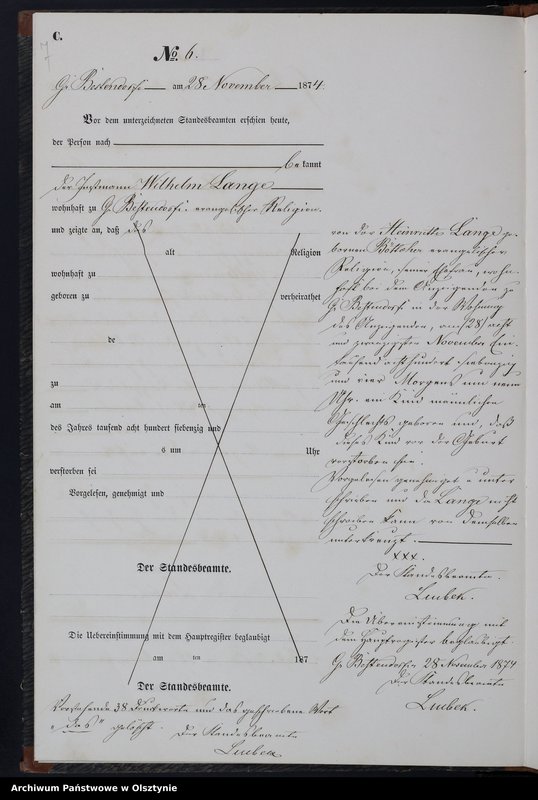 C.
7
No. 6.
Gr. Bestendorf am 28 November 1874.
Vor dem unterzeichneten Standesbeamten erschien heute,
der Person nach
bekannt
der Instmann Wilhelm Lange
wohnhaft zu Gr. Bestendorf evangelischer Religion
und zeigte an, daß das
alt Religion
wohnhaft zu
geboren zu verheirathet
de
zu
am ten
des Jahres tausend acht hundert siebenzig und
s um Uhr
verstorben sei
Vorgelesen, genehmigt und
Der Standesbeamte.
Die Uebereinstimmung mit dem Hauptregister beglaubigt
am ten 187
Der Standesbeamte.
Vorstehende 38 Druckworte und das geschriebene Wort
"das" gelöscht. Der Standesbeamte
Lubek
von der Heinriette Lange ge-
borenen Böttcher evangelischer
Religion, seiner Ehefrau, wohn-
haft bei dem Anzeigenden zu
Gr. Bestendorf in der Wohnung
des Anzeigenden, am (28) acht
und zwanzigsten November Ein-
tausend achthundert siebenzig
und vier Morgens um neun
Uhr ein Kind männlichen
Geschlechts geboren und, daß
dieses Kind vor der Geburt
verstorben sei.
Vorgelesen genehmigt u unter
schrieben und da Lange nicht
schreiben kann von demselben
unterkreuzt.
XXX.
Der Standesbeamte.
Lubek.
Die Uebereinstimmung mit
dem Hauptregister beglaubigt.
Gr. Bestendorf 28 November 1874
Der Standesbeamte
Lubek.
Archiwum Państwowe w Olsztynie